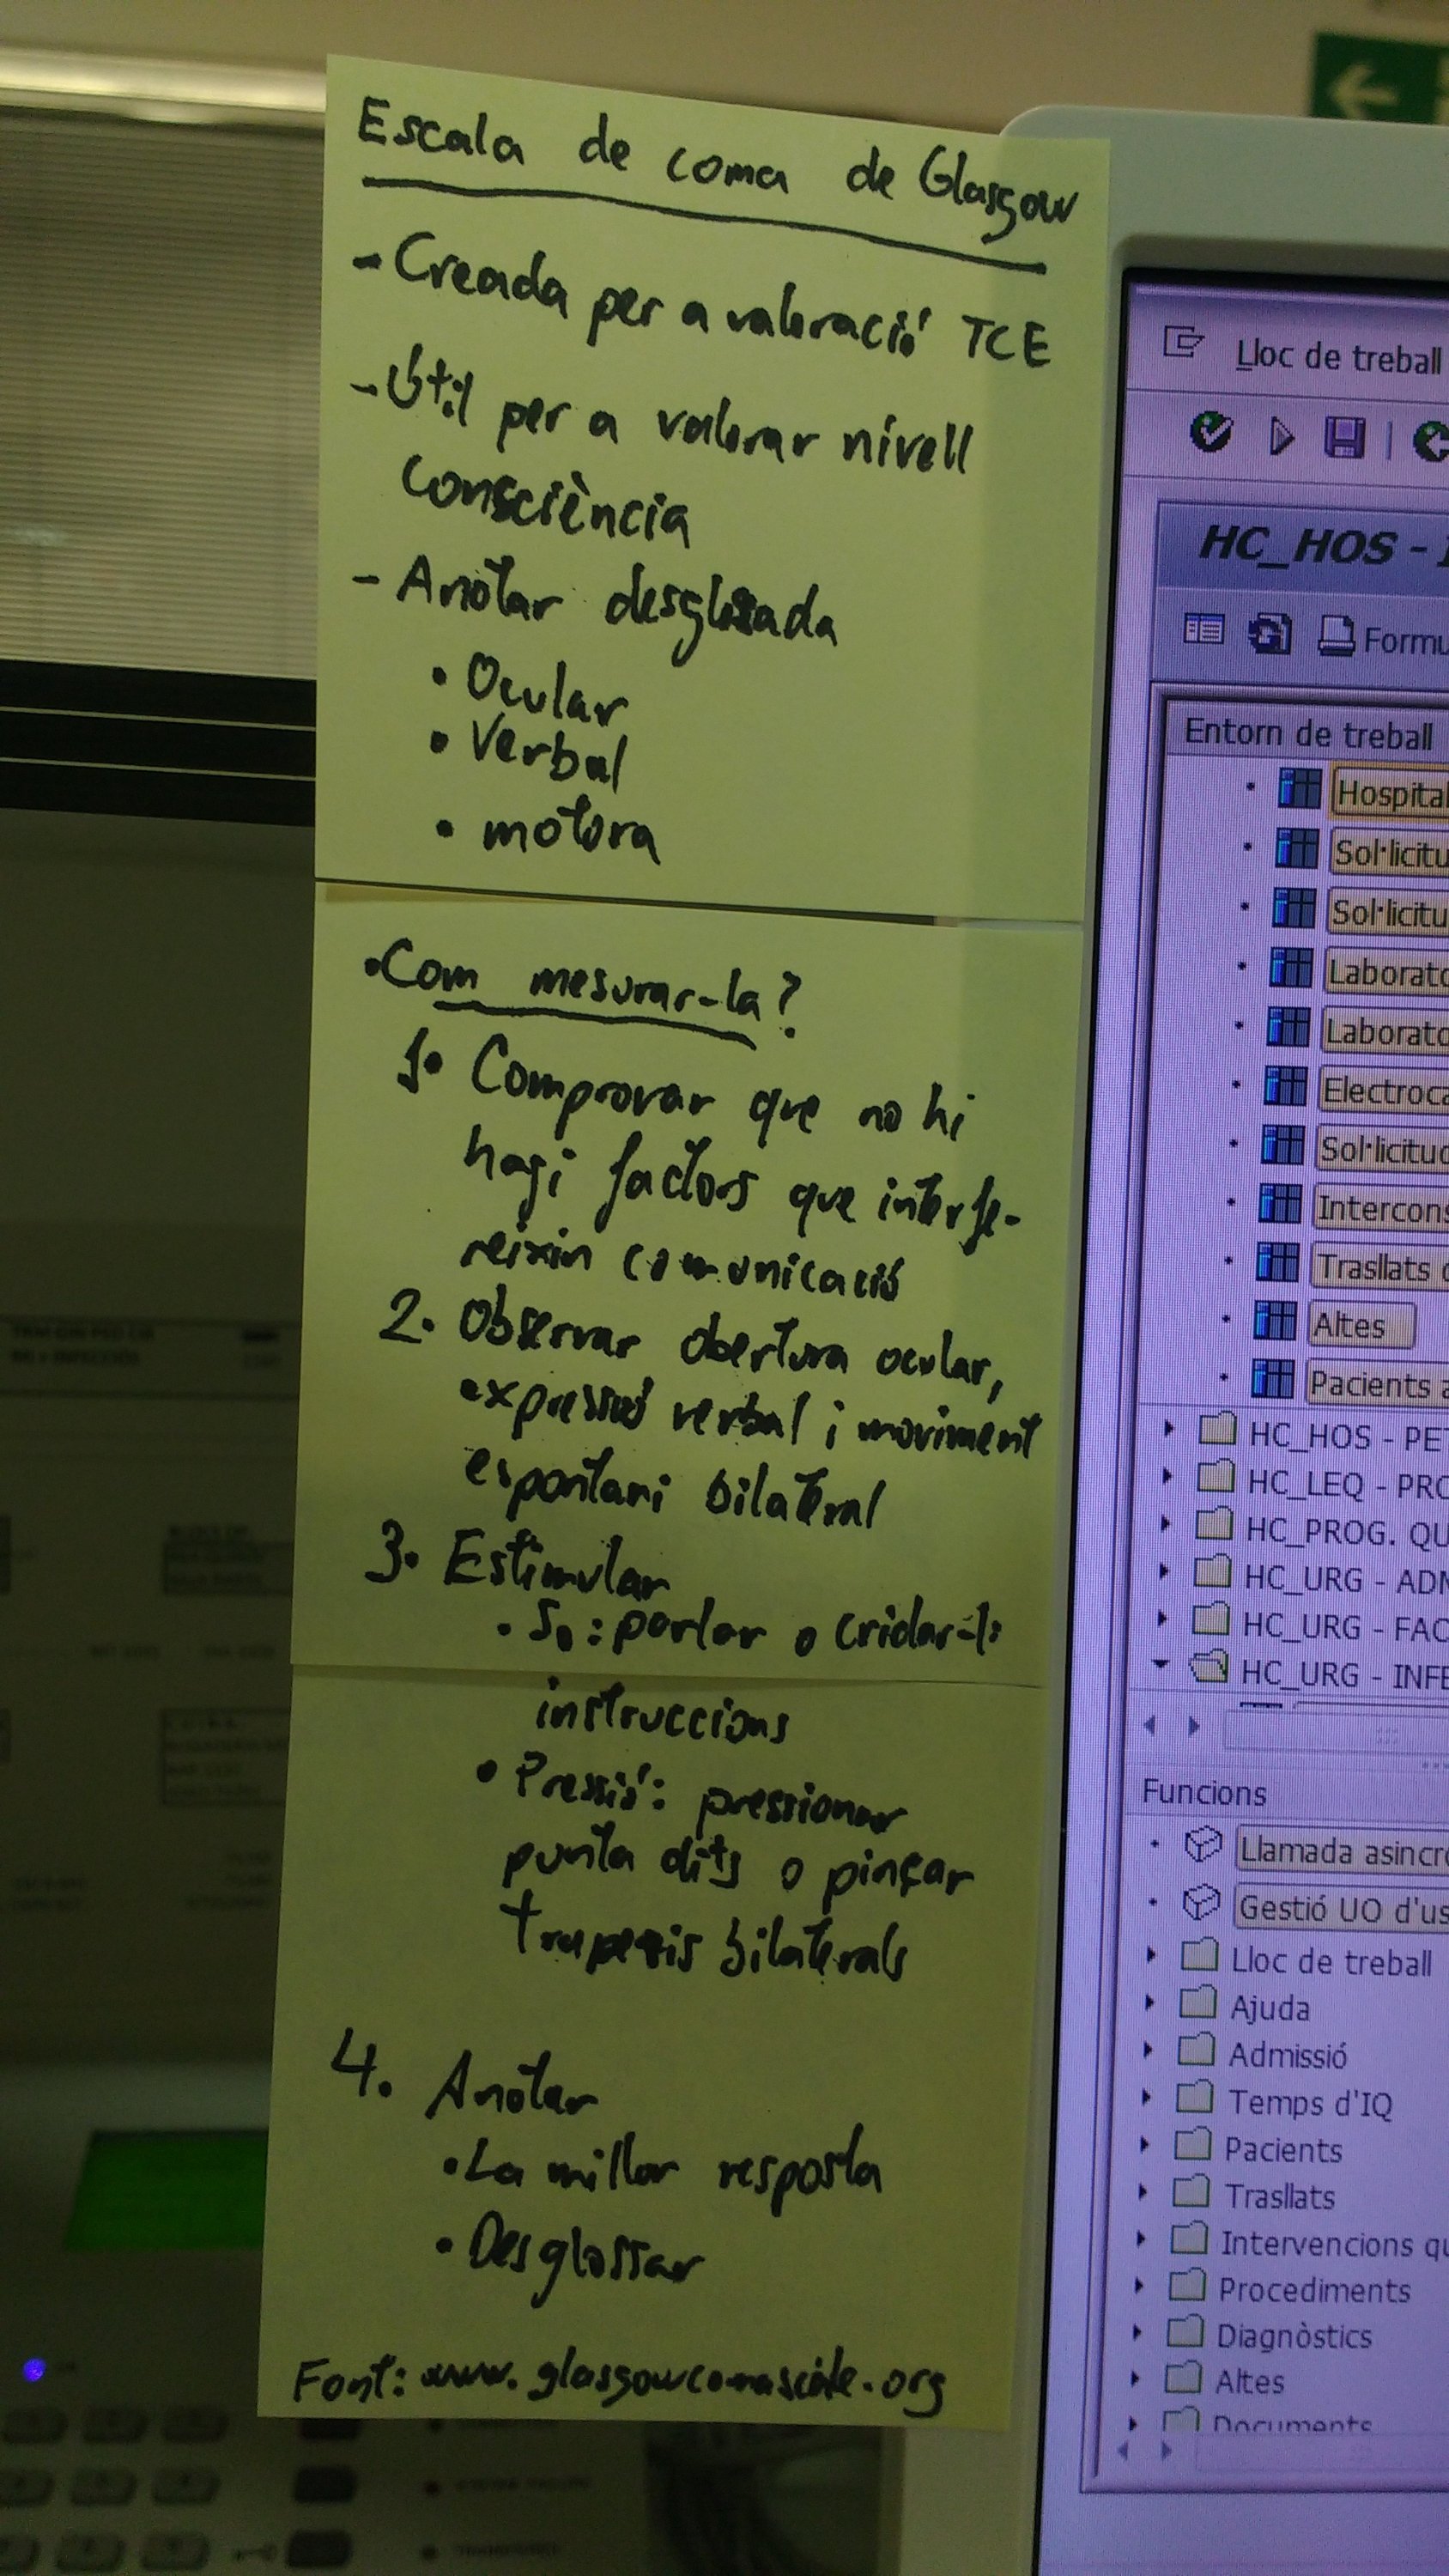 Escala de coma de Glasgow
- Creada per a valoració TCE
- Útil per a valorar nivell
consciència
- Anotar desglosada
• Ocular
• Verbal
• motora
• Com mesurar-la?
1. Comprovar que no hi
hagi factors que interfe-
reixin comunicació
2. Observar obertura ocular,
expressió verbal i moviment
espontani bilateral
3. Estimular
• So: parlar o cridar-li
instruccions
• Pressió: pressionar
punta dits o pinçar
trapezis bilaterals
4. Anotar
• La millor resposta
• Desglossar
Font: www.glasgowcomascale.org
Lloc de treball
HC_HOS -
Formu
Entorn de treball
Hospital
Sol·licitu
Sol·licitu
Laborato
Laborato
Electroca
Sol·licitud
Intercons
Trasllats
Altes
Pacients a
HC_HOS - PET
HC_LEQ - PRO
HC_PROG. QU
HC_URG - ADM
HC_URG - FAC
HC_URG - INFE
Funcions
Llamada asincro
Gestió UO d'us
Lloc de treball
Ajuda
Admissió
Temps d'IQ
Pacients
Trasllats
Intervencions qu
Procediments
Diagnòstics
Altes
Documents